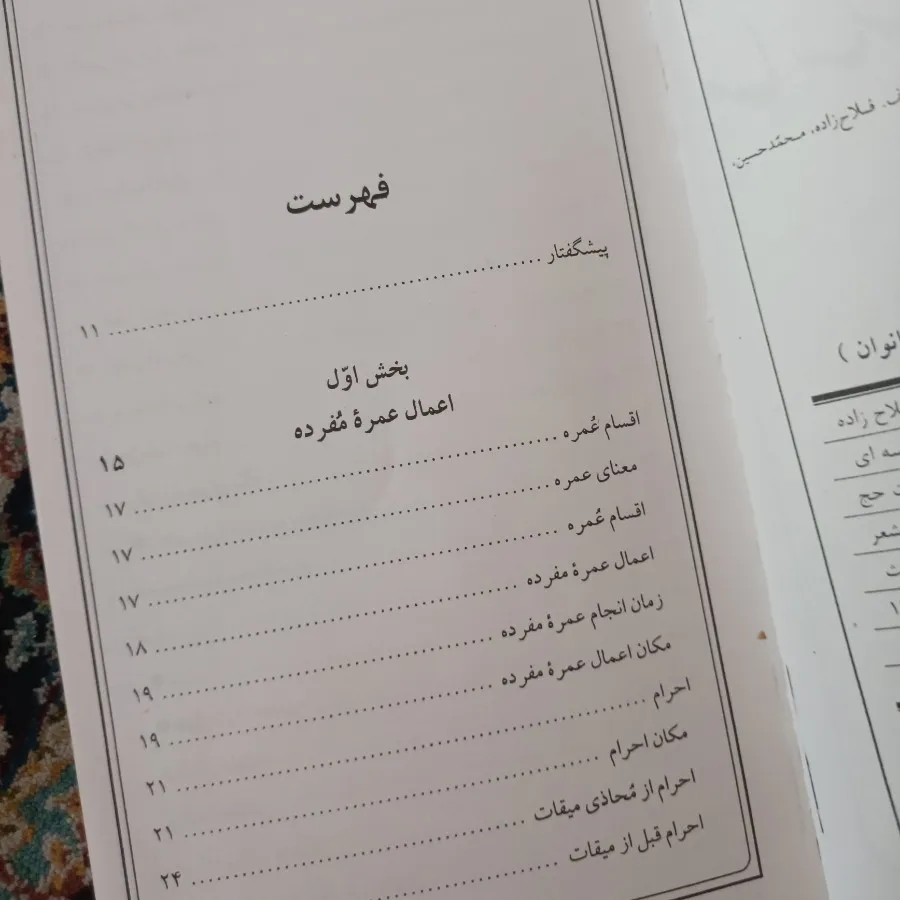 فهرست
پیشگفتار ........ ۱۱
بخش اوّل
اعمال عمرهٔ مُفرده ۱۵
اقسام عُمره ........ ۱۷
معنای عمره ........ ۱۷
اقسام عُمره ........ ۱۷
اعمال عمرهٔ مفرده ........ ۱۸
زمان انجام عمرهٔ مفرده ........ ۱۹
مکان اعمال عمرهٔ مفرده ........ ۱۹
احرام ........ ۲۱
مکان احرام ........ ۲۱
احرام از مُحاذی میقات ........ ۲۴
احرام قبل از میقات ........
فلاح‌زاده، محمّدحسین،
انوان )
لاح زاده
سه ای
حج
شعر
۱